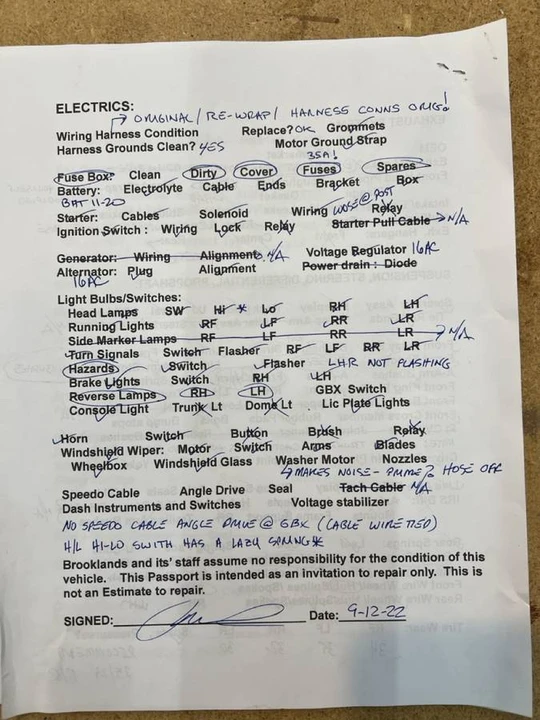 ELECTRICS:
ORIGINAL / RE-WRAP / HARNESS CONNS ORIG!
Wiring Harness Condition Replace? OK Grommets
Harness Grounds Clean? YES Motor Ground Strap
35A!
Fuse Box: Clean Dirty Cover Fuses Spares
Battery: Electrolyte Cable Ends Bracket Box
BAT 11-20 LOOSE @ POST
Starter: Cables Solenoid Wiring Relay
Ignition Switch: Wiring Lock Relay Starter Pull Cable → N/A
Generator: Wiring Alignment N/A Voltage Regulator 16AC
Alternator: Plug Alignment Power drain: Diode
16AC
Light Bulbs/Switches:
Head Lamps SW Hi * Lo RH LH
Running Lights RF LF RR LR
Side Marker Lamps RF LF RR LR → N/A
Turn Signals Switch Flasher RF LF RR LR
Hazards Switch Flasher LHR NOT FLASHING
Brake Lights Switch RH LH
Reverse Lamps RH LH GBX Switch
Console Light Trunk Lt Dome Lt Lic Plate Lights
Horn Switch Button Brush Relay
Windshield Wiper: Motor Switch Arms Blades
Wheelbox Windshield Glass Washer Motor Nozzles
↳ MAKES NOISE - PRIME? HOSE OFF
Speedo Cable Angle Drive Seal Tach Cable N/A
Dash Instruments and Switches Voltage stabilizer
NO SPEEDO CABLE ANGLE DRIVE @ GBX (CABLE WIRE TIED)
H/L HI-LO SWITH HAS A LAZY SPRING *
Brooklands and its' staff assume no responsibility for the condition of this
vehicle. This Passport is intended as an invitation to repair only. This is
not an Estimate to repair.
SIGNED: Date: 9-12-22